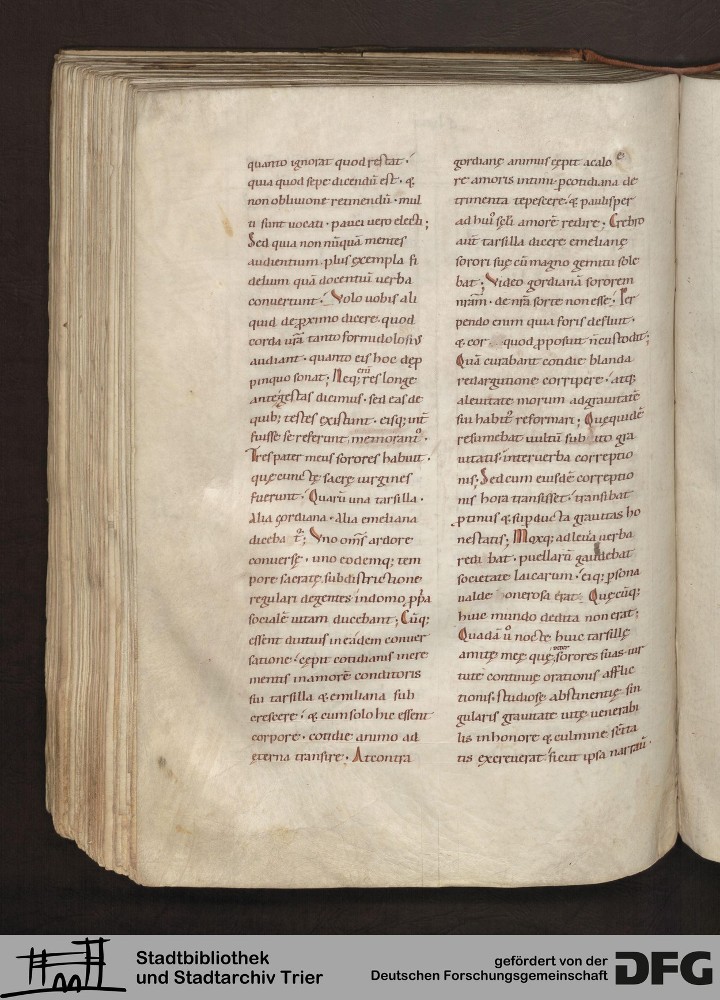 quanto ignorat quod restat ·
quia quod sepe dicendū est · &
non oblivione retinendū · mul
ti sunt vocati · pauci vero electi ;
Sed quia non nūquā mentes
audientium plus exempla fi
delium quā docentiū verba
convertunt · Volo vobis ali
quid de proximo dicere · quod
corda vr̄a tanto formidolosius
audiant · quanto eis hoc de ꝓ
pinquo sonat ; Neq; eni res longe
ante gestas dicimus · sed eas de
quib; testes existunt · eisq; int̄
fuisse se referunt memoram ·
Tres pater meus sorores habuit ·
que cuncte sacre virgines
fuerunt · Quarū una tarsilla ·
Alia gordiana · Alia emeliana
diceba t² ; Uno om̄s ardore
converse · uno eodemq; tem
pore sacrate · sub districtione
regulari degentes in domo ꝓpa
socialē vitam ducebant ; Cūq;
essent diutius in eadem conver
satione · cepit cotidianis incre
mentis in amorē conditoris
sui tarsilla & emiliana sub
crescere · & cum solo hic essent
corpore · cotidie animo ad
eterna transire · At contra
gordiane animus cepit a calo
re amoris intimi ꝑ cotidiana de
trimenta tepescere · & paulisper
ad hui² scli amorē redire ; Crebro
aūt tarsilla dicere emeliane
sorori sue cū magno gemitu sole
bat ; Video gordianā sororem
nr̄am · de nr̄a sorte non esse ; Per
pendo enim quia foris defluit ·
& cor quod proposuit n̄ custodit ;
Quā curabant cotidie blanda
redargutione corripere · atq;
a levitate morum ad gravitatē
sui habit² reformari ; Que quidē
resumebat vultū subito gra
vitatis inter verba correptio
nis ; Sed cum eiusdē correptio
nis hora transisset · transibat
ꝓtinus & superducta gravitas ho
nestatis ; Moxq; ad levia verba
redi bat · puellarū gaudebat
societate laicarum · eiq; persona
valde onerosa erat · Quecūq;
huic mundo dedita non erat ;
Quadā ů nocte huic tarsille
amite mee que inter sorores suas vir
tute continue orationis afflic
tionis studiose abstinentie sin
gularis gravitate vite venerabi
lis in honore & culmine sc̄ita
tis excreverat · sicut ipsa narravit ·
Stadtbibliothek
und Stadtarchiv Trier
gefördert von der
Deutschen Forschungsgemeinschaft
DFG